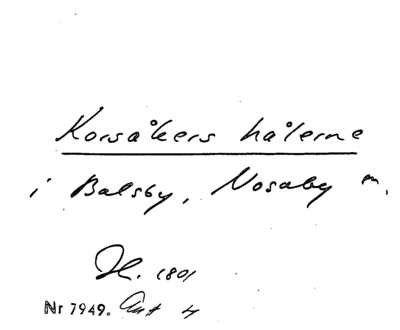 Korsåkers hålerne
i Balsby, Nosaby m.
H. 1801
Nr 7949. Ant 4